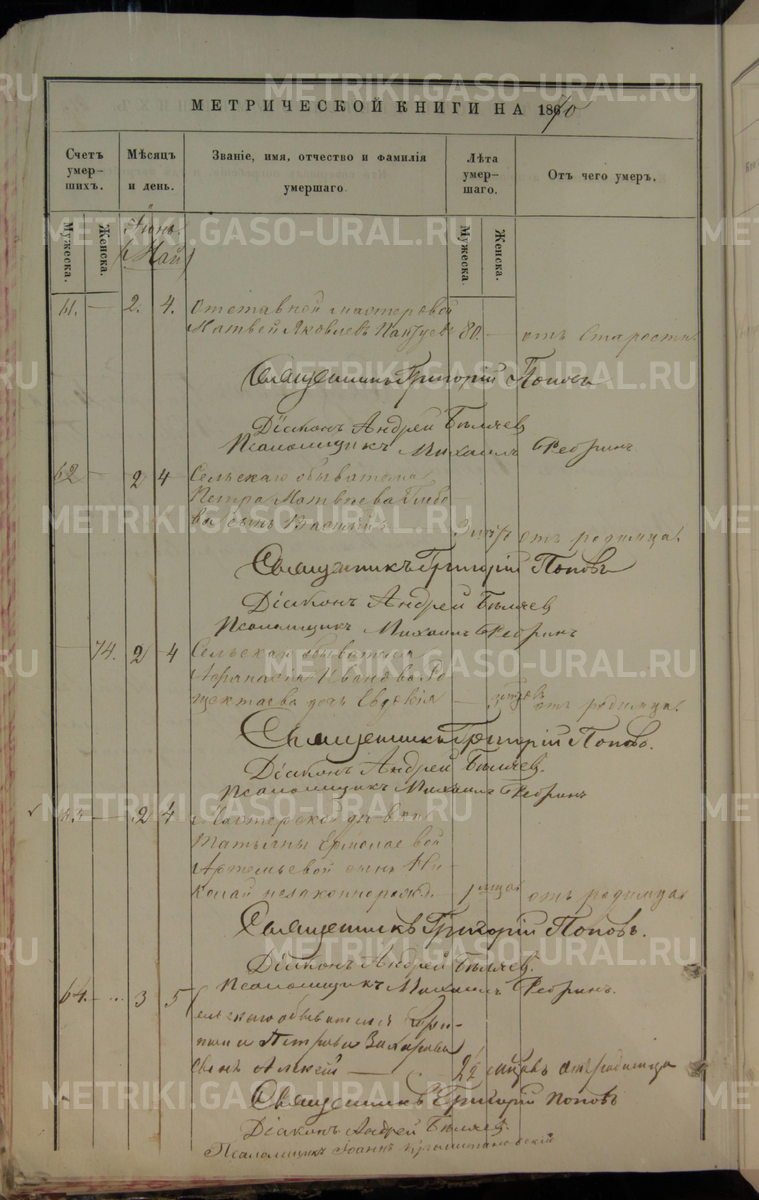 МЕТРИЧЕСКОЙ КНИГИ НА 1870
Счетъ умер-шихъ. Мѣсяцъ и день. Званіе, имя, отчество и фамилія умершаго. Лѣта умер-шаго. Отъ чего умеръ.
Мужеска. Женска. Мужеска. Женска.
Іюнь
(Май)
61. — 2. 4. Отставной мастеровой
Матвей Яковлевъ 80. — отъ старости.
Священникъ Григорій Поповъ
Діаконъ Андрей Бѣляев
Псаломщикъ Михаилъ Ребринъ
62 — 2 4 Сельскаго обывателя
Петра Матвѣева Глебо-
ва сынъ Василій 3 отъ родимца.
Священникъ Григорій Поповъ
Діаконъ Андрей Бѣляев
Псаломщикъ Михаилъ Ребринъ
74. 2 4 Сельскаго обывателя
Афанасія Иванова
дочь Евдокія — отъ родимца.
Священникъ Григорій Поповъ.
Діаконъ Андрей Бѣляев.
Псаломщикъ Михаилъ Ребринъ
— 2 4 Мастерской дѣвки
Татьяны Ермолаевой
Артемьевой сынъ Ни-
колай незаконнорожд. — 1 мца. отъ родимца
Священникъ Григорій Поповъ.
Діаконъ Андрей Бѣляев.
Псаломщикъ Михаилъ Ребринъ.
64. — 3 5 Сельскаго обывателя
Петрова Захарова
сынъ Алексій — 2½ отъ родимца
Священникъ Григорій Поповъ
Діаконъ Андрей Бѣляев.
Псаломщикъ Іоаннъ
METRIKI.GASO-URAL.RU